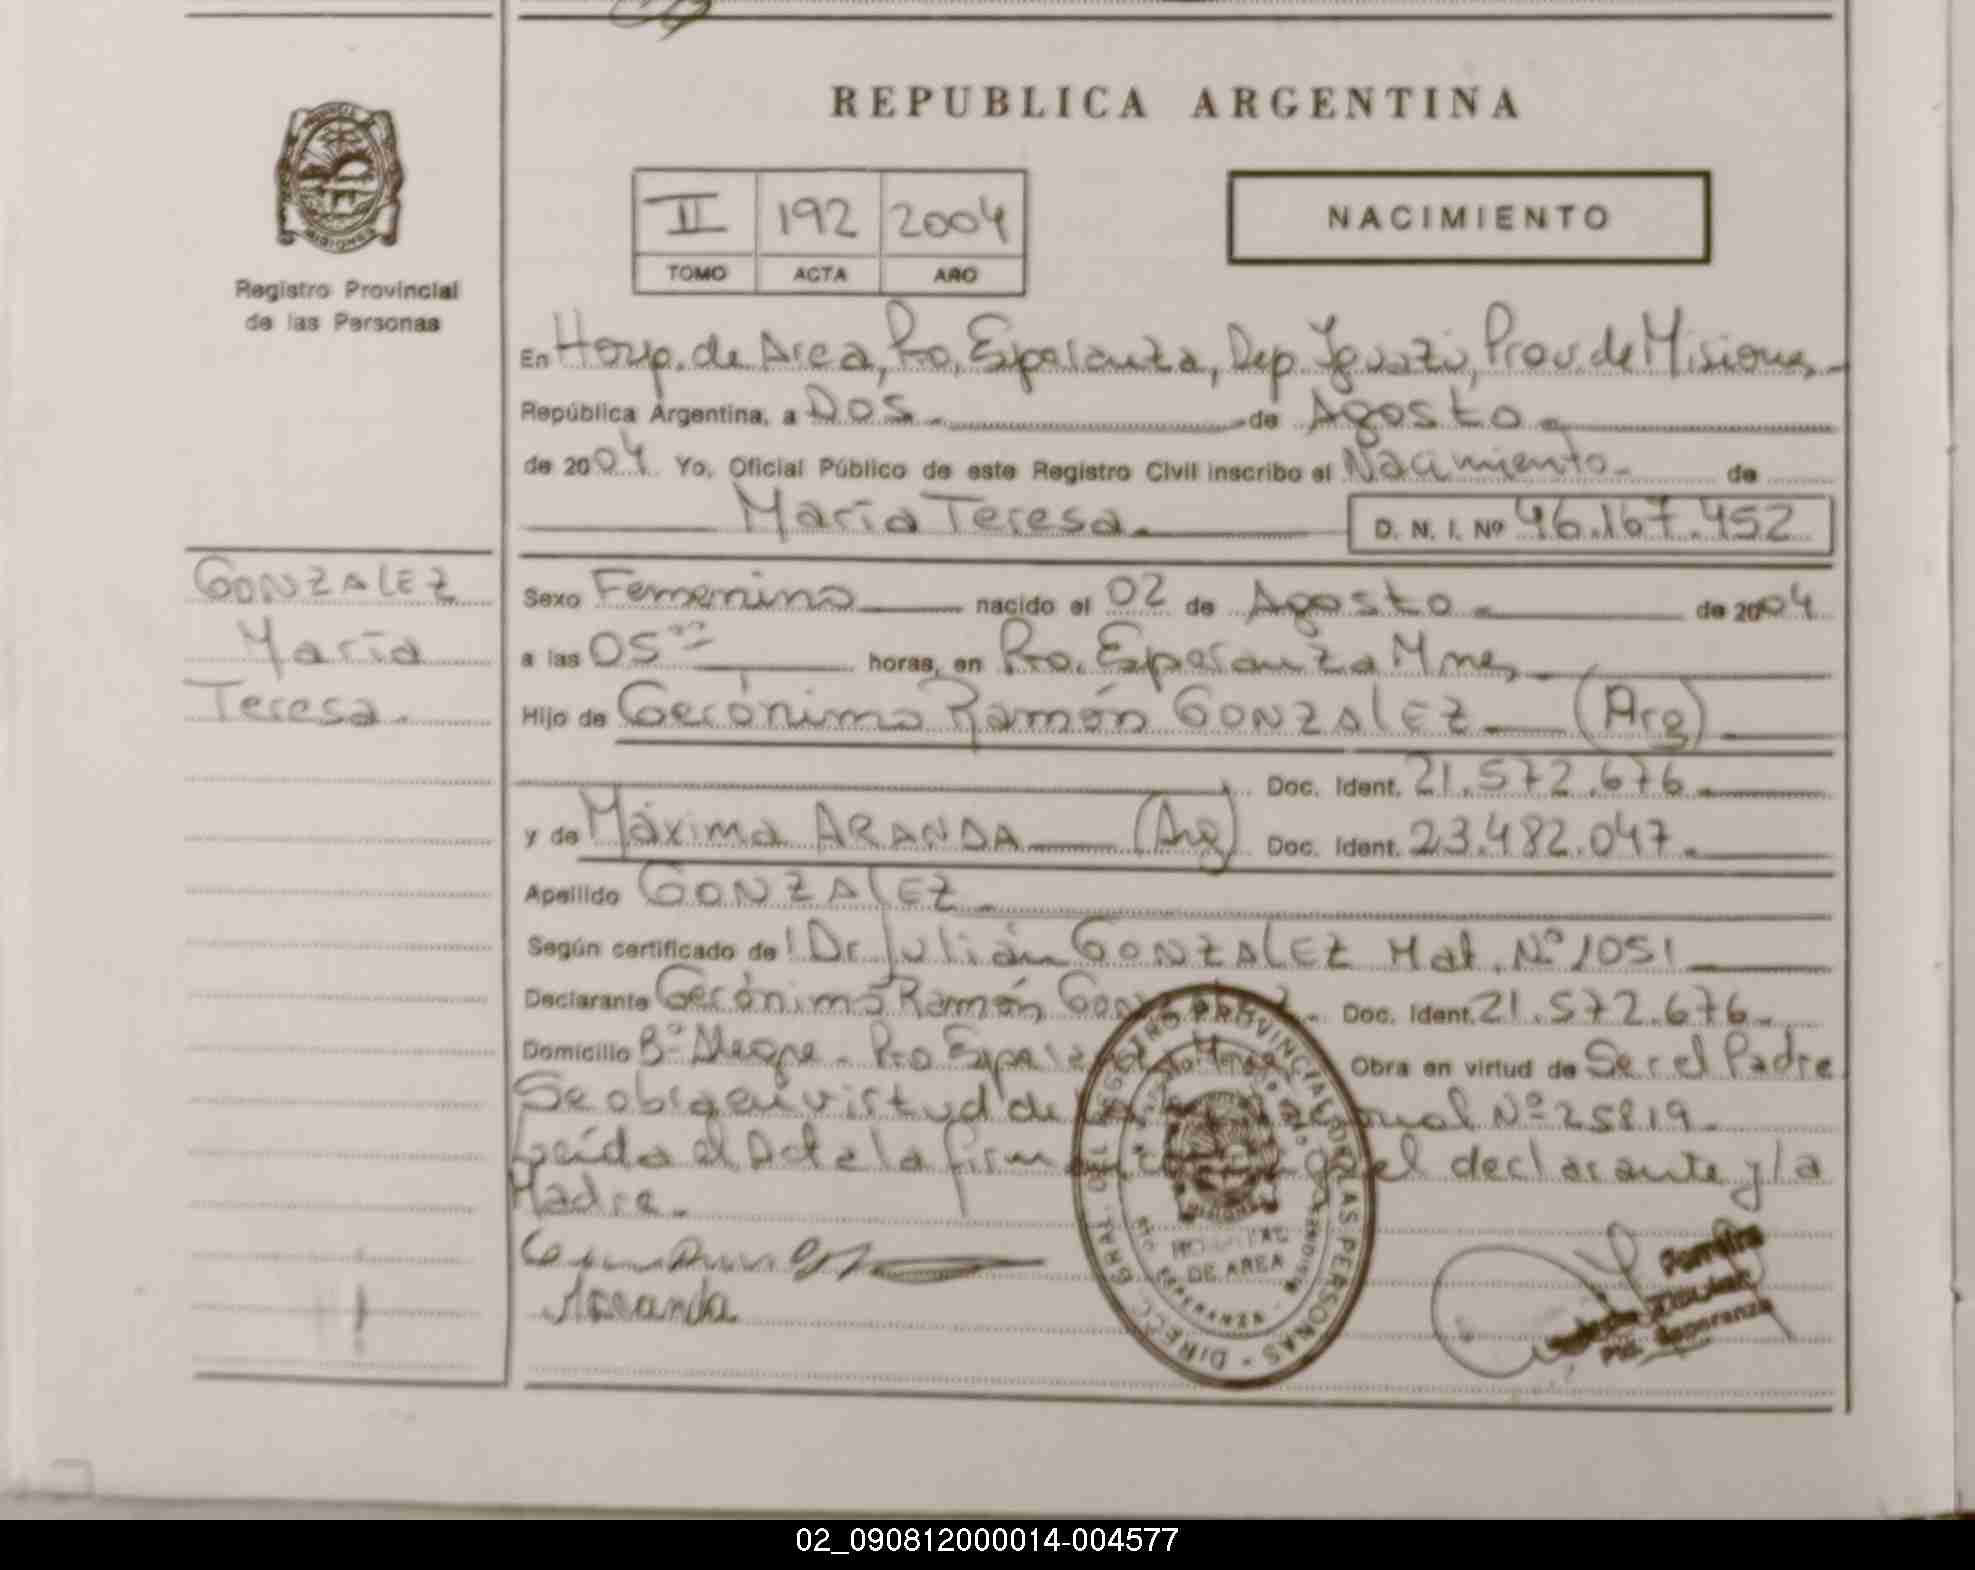 REPUBLICA ARGENTINA
II 192 2004
TOMO ACTA AÑO
NACIMIENTO
Registro Provincial
de las Personas
En Hosp. de Area, Pto. Esperanza, Dep. Iguazú, Prov. de Misiones
República Argentina, a Dos de Agosto
de 2004 Yo, Oficial Público de este Registro Civil inscribo el Nacimiento de
María Teresa D. N. I. Nº 46.167.452
GONZALEZ
María
Teresa.
Sexo Femenino nacido el 02 de Agosto de 2004
a las 05 horas, en Pto. Esperanza Mnes
Hijo de Gerónimo Ramón GONZALEZ (Arg)
Doc. Ident. 21.572.676
y de Máxima ARANDA (Arg) Doc. Ident. 23.482.047.
Apellido GONZALEZ
Según certificado de Dr. Julián GONZALEZ Mat. Nº 1051
Declarante Gerónimo Ramón Doc. Ident. 21.572.676
Domicilio Bº Pto Obra en virtud de Ser el Padre
Se obra en virtud de Nº 25819
Leída el Acta la firman el declarante y la
Madre.
Aranda
DIRECC. GRAL. DEL REGISTRO PROVINCIAL DE LAS PERSONAS
HOSPITAL
DE AREA
Esperanza
02_090812000014-004577